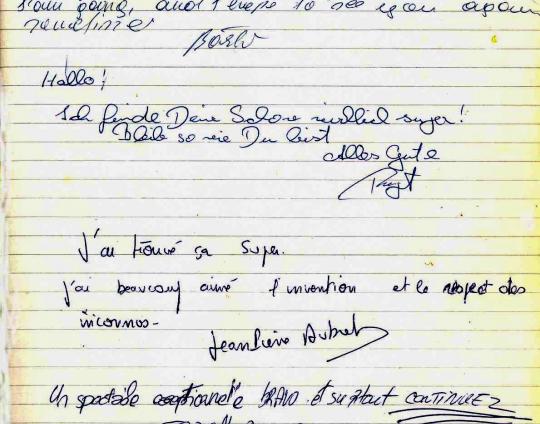 I am going, and I hope to see you again
sometime
Hallo!
Ich finde Deine Schow wirklich super!
Bleib so wie Du bist
Alles Gute
J'ai trouvé ça super.
J'ai beaucoup aimé l'invention et le respect des
inconnus-
Jean Pierre Aubret
Un spectacle exceptionnelle BRAVO et surtout CONTINUEZ